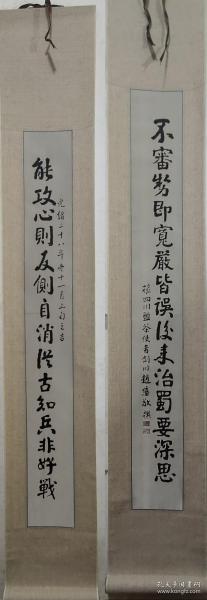 不審勢即寬嚴皆誤後來治蜀要深思
能攻心則反側自消從古知兵非好戰
光緒二十八年冬十一月上旬之吉
權四川鹽茶使者劍川趙藩敬撰